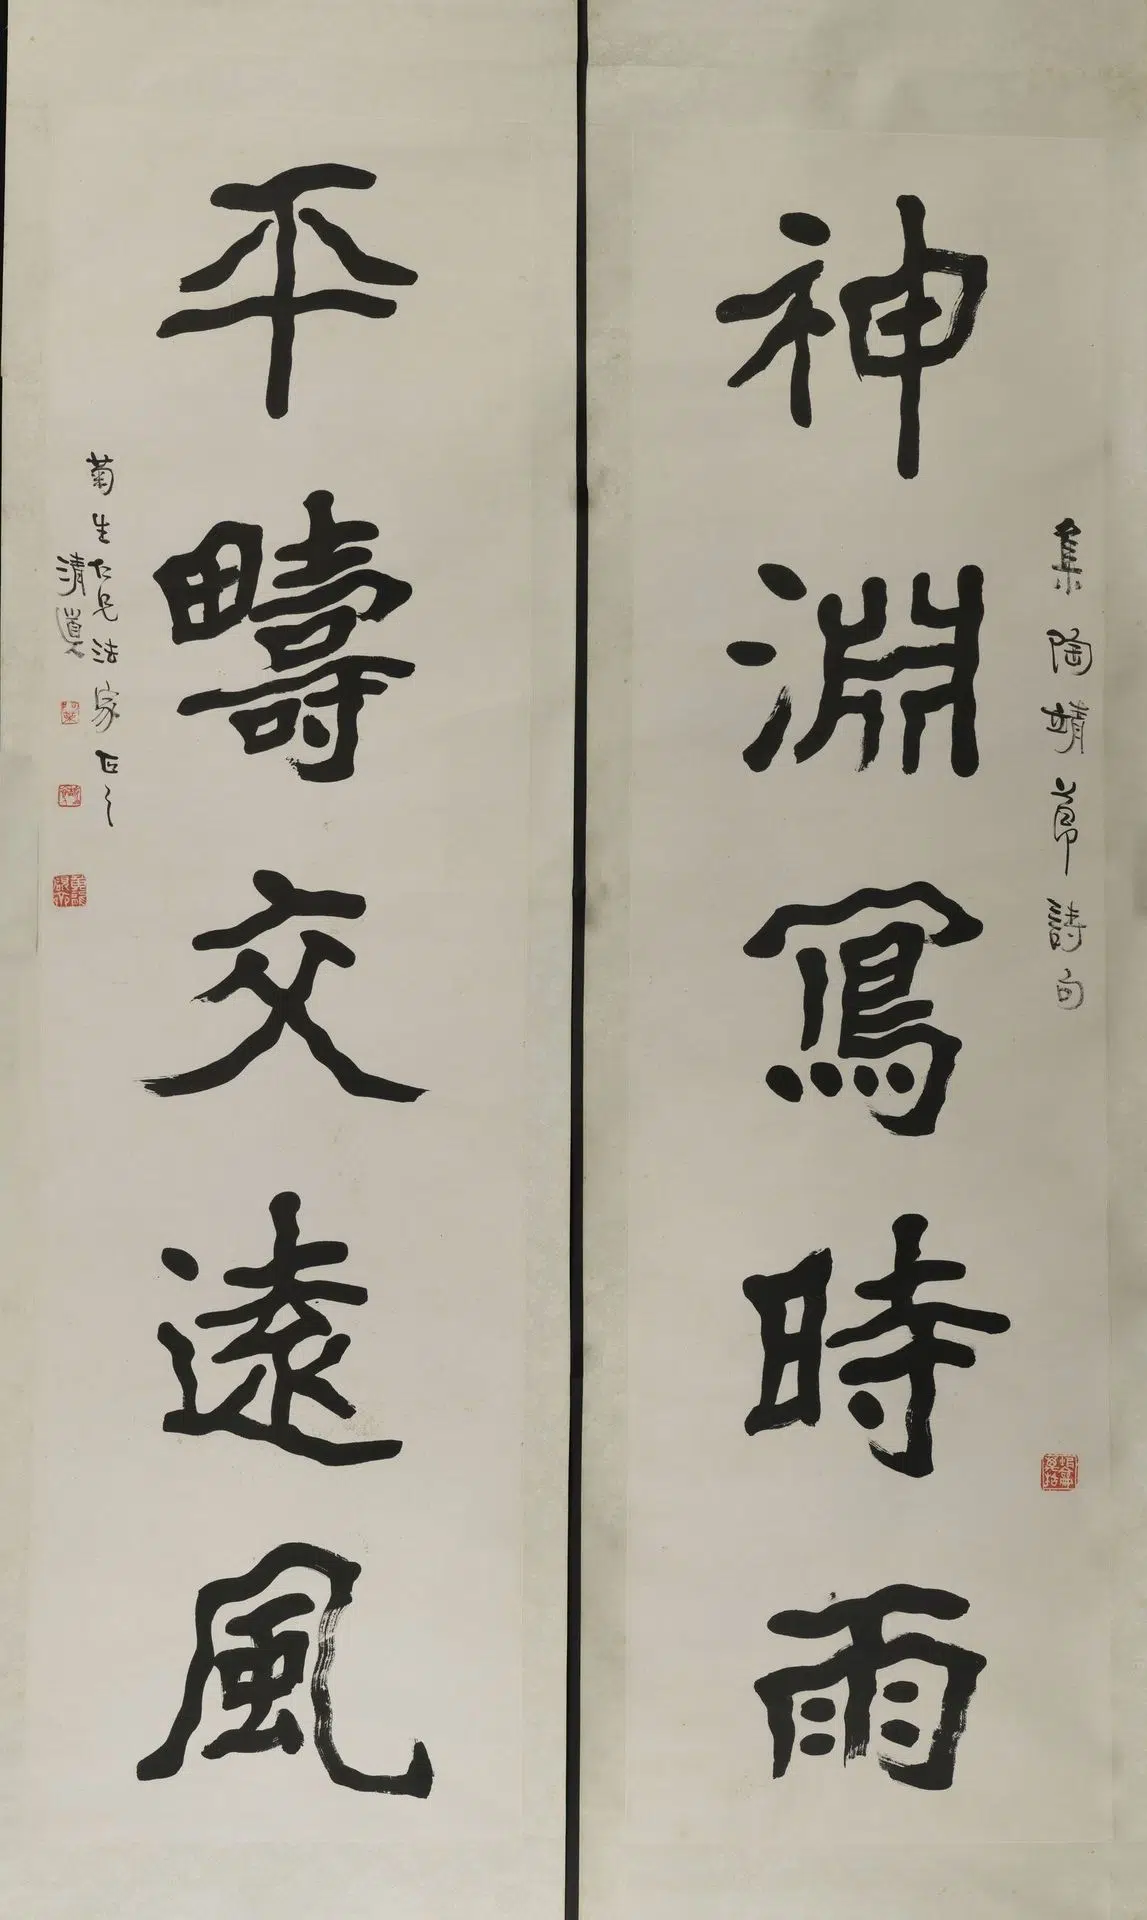 集陶靖節詩句
神淵寫時雨
平疇交遠風
菊生仁兄法家正之
清道人